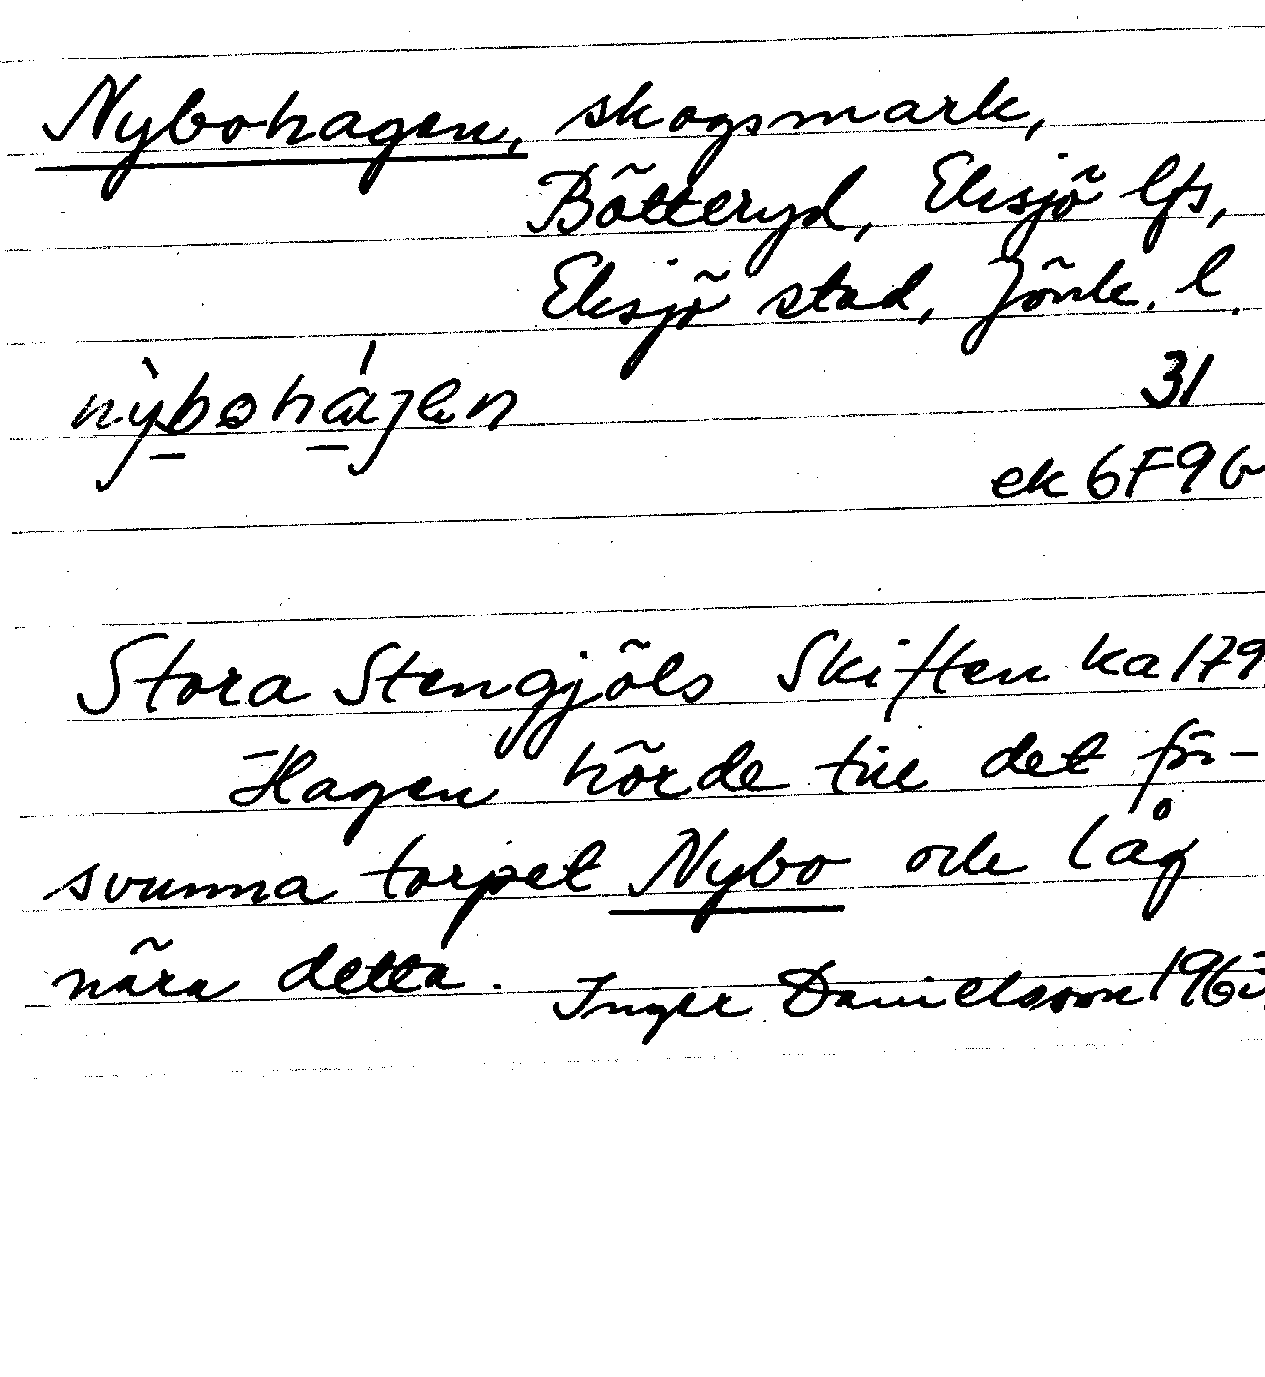 Nybohagen, skogsmark,
Bötteryd, Eksjö lfs,
Eksjö stad, Jönk. l.
nỳbohá̱gen
31
ek 6F9G
Stora Stengjöls Skiften ka 179
Hagen hörde till det för-
svunna torpet Nybo och låg
nära detta.
Inger Danielsson 196